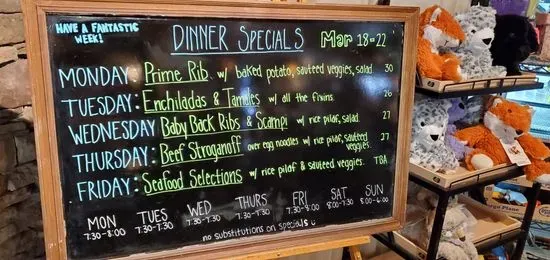 HAVE A FANTASTIC
WEEK!
DINNER SPECIALS Mar 18-22
MONDAY: Prime Rib w/ baked potato, sauteed veggies, salad 30
TUESDAY: Enchiladas & Tamales w/ all the fixins. 26
WEDNESDAY Baby Back Ribs & Scampi w/ rice pilaf, salad 27
THURSDAY: Beef Stroganoff over egg noodles w/ rice pilaf, sauteed veggies. 27
FRIDAY: Seafood Selections w/ rice pilaf & sauteed veggies. TBA
MON TUES WED THURS FRI SAT SUN
7:30-8:00 7:30-7:30 7:30-7:30 7:30-7:30 7:30-8:00 8:00-7:30 8:00-6:00
no substitutions on specials